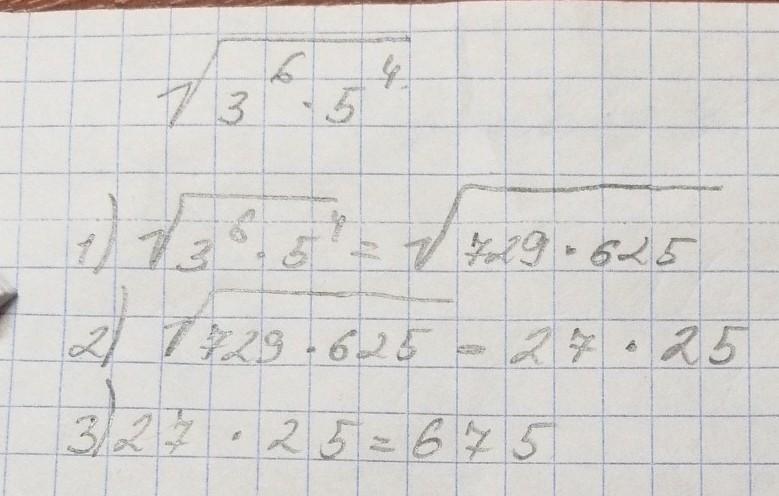 √3⁶·5⁴
1) √3⁶·5⁴ = √729·625
2) √729·625 = 27·25
3) 27·25=675